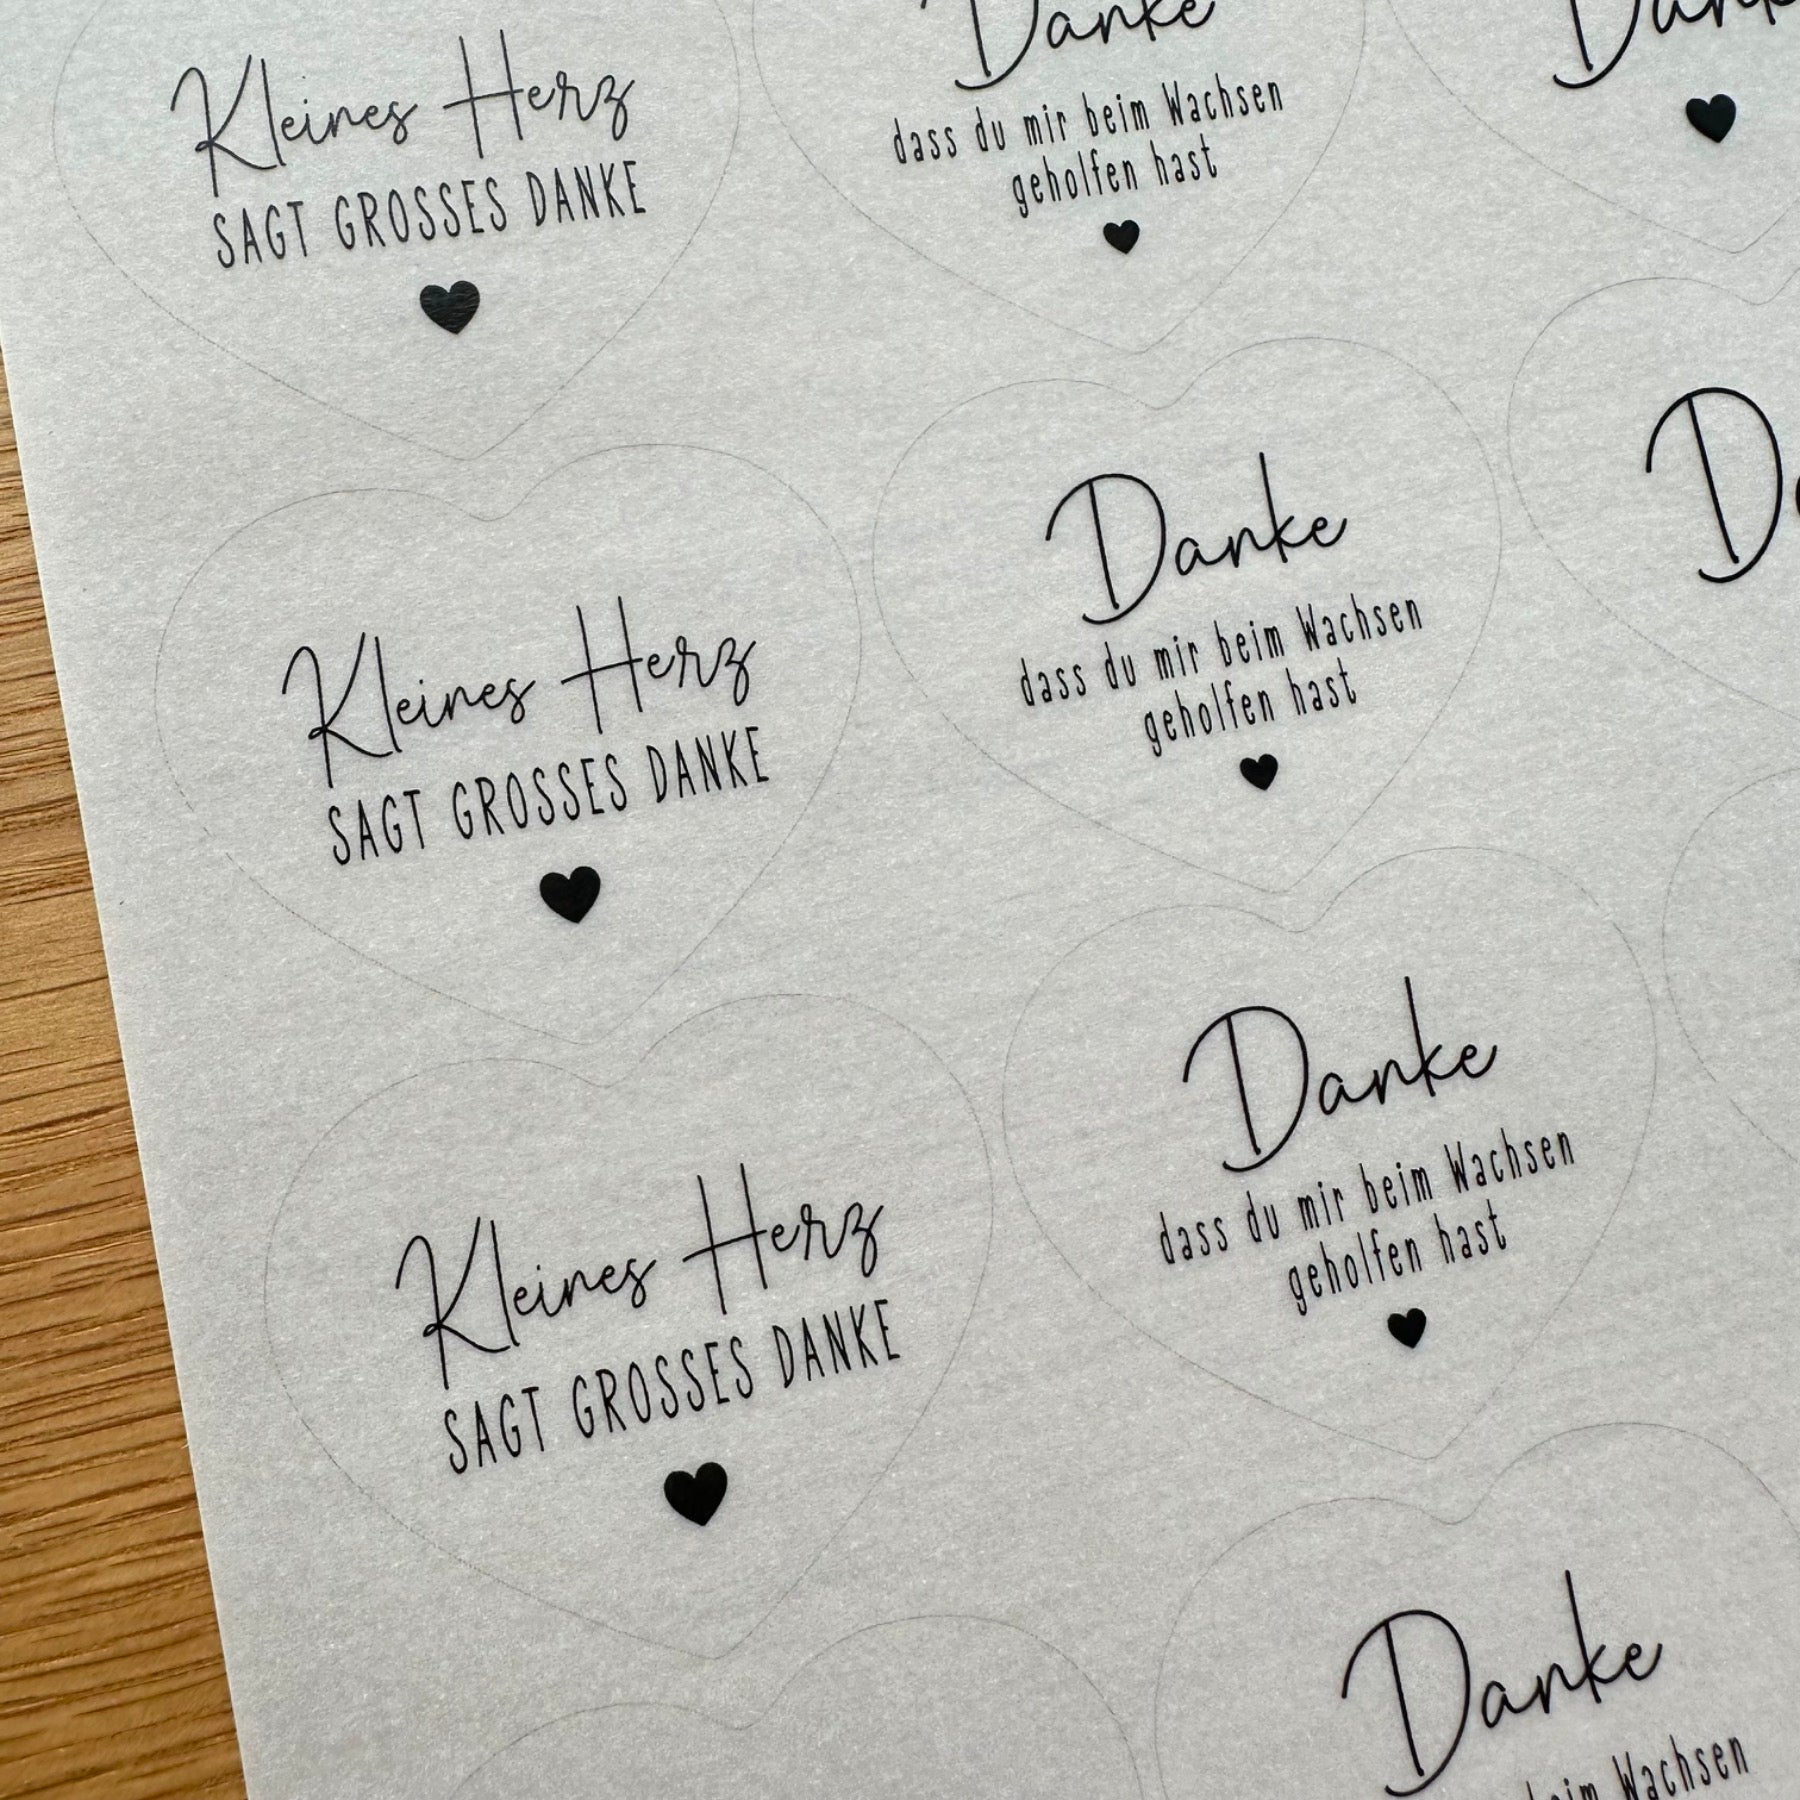 Kleines Herz
SAGT GROSSES DANKE
Danke
dass du mir beim Wachsen
geholfen hast
Kleines Herz
SAGT GROSSES DANKE
Danke
dass du mir beim Wachsen
geholfen hast
Kleines Herz
SAGT GROSSES DANKE
Danke
dass du mir beim Wachsen
geholfen hast
Danke
Wachsen